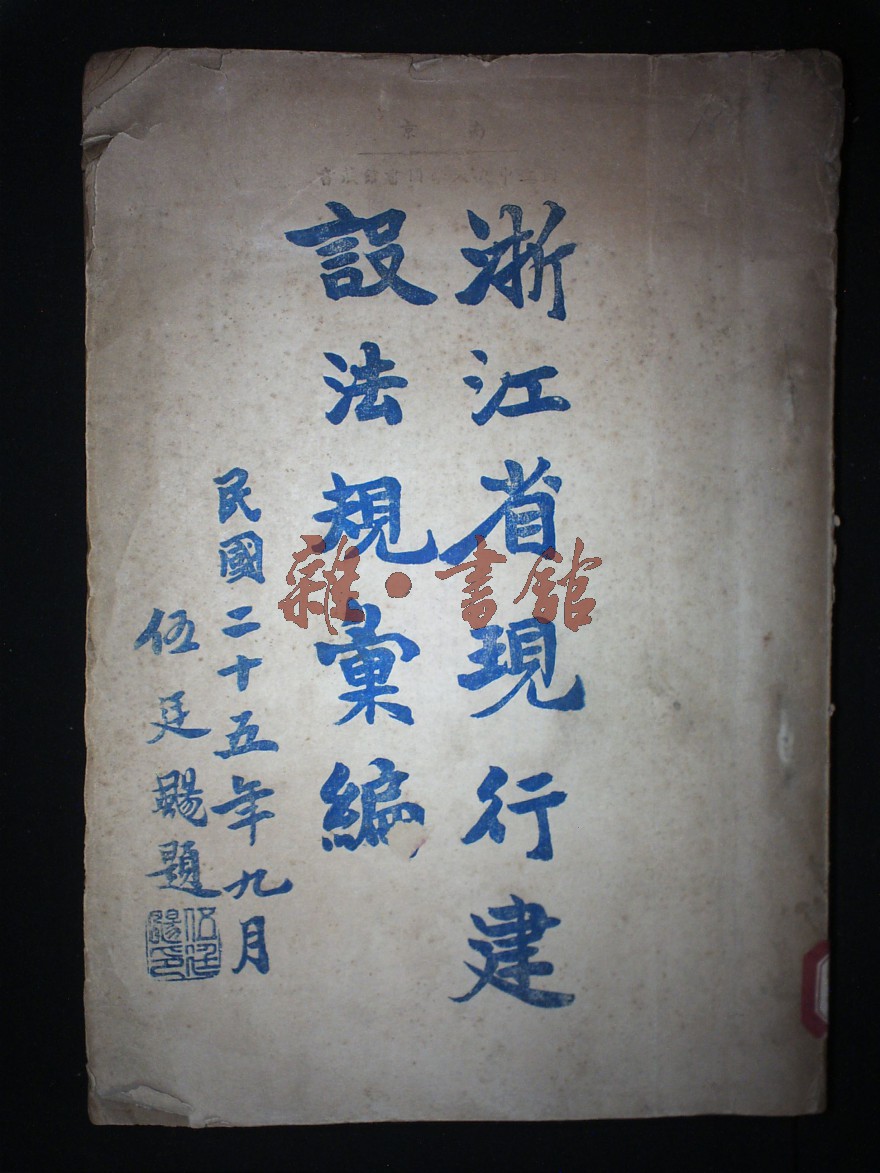 南京
浙江省現行建
設法規彙編
民國二十五年九月
伍廷颺題
伍廷颺印
雜·書館